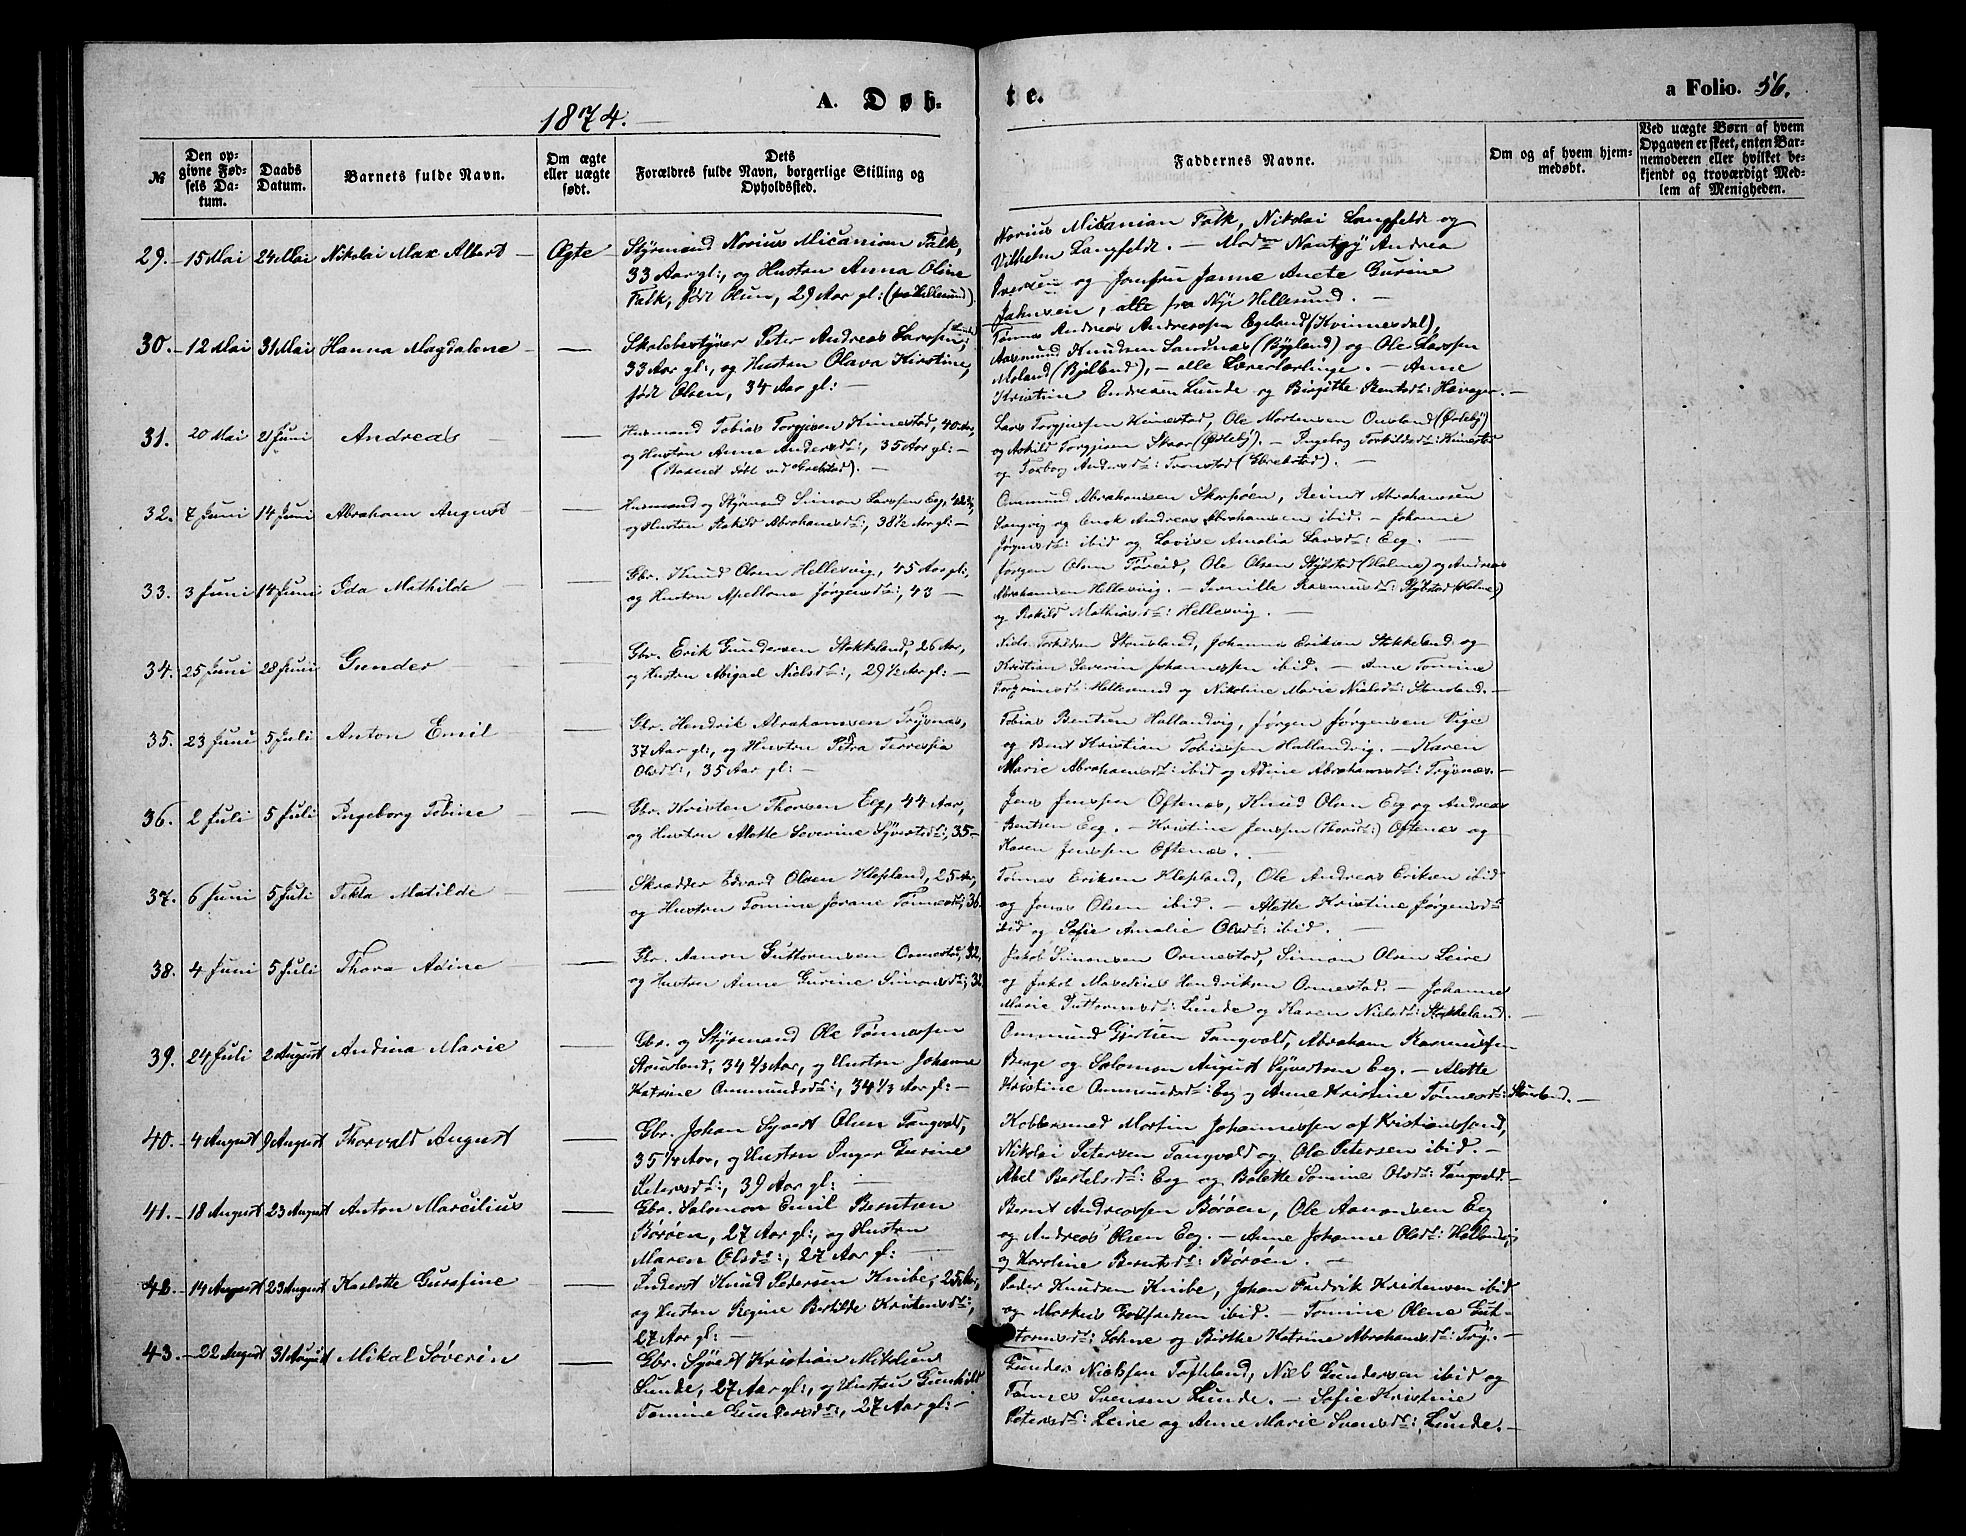 1874.
A. Døb-
te.
a Folio. 56.
№
Den op-
givne Fød-
sels Da-
tum.
Daabs
Datum.
Barnets fulde Navn.
Om ægte
eller uægte
født.
Dets
Forældres fulde Navn, borgerlige Stilling og
Opholdssted.
Faddernes Navne.
Om og af hvem hjem-
medøbt.
Ved uægte Børn af hvem
Opgaven er skeet, enten Bar-
nemoderen eller hvilket be-
kjendt og troværdigt Med-
lem af Menigheden.
29. 15 Mai 24 Mai Nikolai Max Albert Ægte
Styrmand Norius Micanian Falk,
33 Aar gl:, og Hustru Anna Oline
Falk, født Olsen, 29 Aar gl:
Norius Micanian Falk, Nikolai Langfeldt og
Vilhelm Langfeldt. — Andrea
Iversen og Jomfru Janne Anete Gurine
Jahnsen, alle fra Nye Hellesund. —
30. 12 Mai 31 Mai Hanna Magdalene —
Skolebestyrer Peter Andreas Larssen,
33 Aar gl:, og Hustru Olava Kirstine,
født Olsen, 34 Aar gl: —
Tønnes Andreas Andreassen Egeland (Kvinnesdal),
Aasmund Knudsen Sandnæs (Bygland) og Ole Larssen
Moland (Bjelland), — alle Lærerlærlinge. — Anne
Kristine Endresen Lunde og Birgitte Berntsd: Havager. —
31. 20 Mai 21 Juni Andreas —
Husmand Tobias Torgjusen Kimestad, 40 Aar,
og Hustru Anna Andersd:, 35 Aar gl: —
Lars Torgjussen Kimestad, Ole Mortensen Ousland (Øslebø)
og Askild Torgjusen Skaar (Øslebø). — Ingeborg Torkildsd: Kimestad
og Torbor Andersd: Tronstad (Grebstad). —
32. 7 Juni 14 Juni Abraham August —
Husmand og Styrmand Simon Larssen Eeg,
og Hustru Rakild Abrahamsd:, 38½ Aar gl: —
Ommund Abrahamsen Skarpøen, Reinert Abrahamsen
Langvig og Enok Andreas Abrahamsen ibid. — Johanne
Jørgensd: ibid og Lovise Amalia Larsd: Eeg. —
33. 3 Juni 14 Juni Ida Mathilde —
Gbr. Knud Olsen Hellesvig, 45 Aar gl:,
og Hustru Apellone Jørgensd:, 43 —
Jørgen Olsen Tøreid, Ole Olsen Stylstad (Holme) og Andreas
Abrahamsen Hellesvig. — Pernille Rasmusd: Stylstad (Holme)
og Rakild Mathiasd: Hellesvig. —
34. 25 Juni 28 Juni Gunder —
Gbr. Erik Gundersen Stokkeland, 26 Aar,
og Hustru Abigael Nielsd:, 29½ Aar gl: —
Niels Torkildsen Stausland, Johannes Eriksen Stokkeland og
Kristian Severin Johannessen ibid. — Ane Tomine
Torgrimsd: Hellesund og Nikoline Marie Nielsd: Stausland. —
35. 23 Juni 5 Juli Anton Emil —
Gbr. Hendrik Abrahamsen Trysnæs,
37 Aar gl:, og Hustru Petra Terresia
Olsd:, 35 Aar gl: —
Tobias Bentsen Hallandvig, Jørgen Jørgensen Vige
og Bent Kristian Tobiassen Hallandvig. — Karen
Marie Abrahamsd: ibid og Adine Abrahamsd: Trysnæs. —
36. 2 Juli 5 Juli Ingeborg Tobine —
Gbr. Kristen Thorsen Eeg, 44 Aar,
og Hustru Alette Severine Syvertsd:, 35 —
Jens Jenssen Oftenæs, Knud Olsen Eeg og Andreas
Bentsen Eeg. — Kristine Jenssen (Thorsd:) Oftenæs og
Karen Jenssen Oftenæs. —
37. 6 Juni 5 Juli Tekla Matilde —
Skrædder Edvard Olsen Klepland, 25 Aar,
og Hustru Tomine Jorane Tønnesd:, 36
Tønnes Eriksen Klepland, Ole Andreas Eriksen ibid
og Jonas Olsen ibid. — Alette Kristine Jørgensd:
ibid og Sofie Amalie Olsd: ibid. —
38. 4 Juni 5 Juli Thora Adine —
Gbr. Aanon Guttormsen Ormestad, 32,
og Hustru Anne Gurine Simonsd:,
Jakob Simonsen Ormestad, Simon Olsen Leire
og Jakob Maxedius Hendriksen Ormestad. — Johanne
Marie Guttormsd: Lunde og Karen Nielsd: Stokkeland. —
39. 24 Juli 2 August Andina Marie —
Gbr. og Styrmand Ole Tønnessen
Stausland, 34⅓ Aar, og Hustru Johanne
Katrine Ommundsd:, 34⅓ Aar gl: —
Ommund Gjertsen Tangvald, Abraham Rasmussen
Berge og Salomon August Syvertsen Eeg. — Alette
Kristine Ommundsd: Eeg og Anne Kristine Tønnesd: Stausland. —
40. 4 August 9 August Thorvald August —
Gbr. Johan Syvert Olsen Tangvald,
35¼ Aar, og Hustru Inger Gurine
Petersd:, 39 Aar gl: —
Kobbersmed Martin Johannessen af Kristianssand,
Nikolai Petersen Tangvald og Ole Petersen ibid. —
Abel Bertelsd: Eeg og Bolette Tomine Olsd: Tangvald. —
41. 18 August 23 August Anton Marcilius —
Gbr. Salomon Emil Berntsen
Børøen, 27 Aar gl:, og Hustru
Maren Olsd:, 27 Aar gl: —
Bernt Andreassen Børøen, Ole Aanonsen Eeg
og Andreas Olsen Eeg. — Anne Johanne Olsd: Hallandvig
og Karoline Berntsd: Børøen. —
42. 14 August 23 August Kaslotte Gurafine —
Inderst Knud Pedersen Knibe, 25 Aar,
og Hustru Regine Bertilde Kristensd:,
27 Aar gl: —
Peder Knudsen Knibe, Johan Fredrik Kristensen ibid
og Markus Gottfredsen ibid. — Tomine Olene Gut-
tormsd: Sohne og Birthe Katrine Abrahamsd: Try. —
43. 22 August 31 August Mikal Søverin —
Gbr. Syvert Kristian Mikalsen
Lunde, 27 Aar gl:, og Hustru Gunhild
Tomine Gundersd:, 27 Aar gl: —
Gunder Nielssen Tofteland, Niels Gundersen ibid og
Tønnes Svensen Lunde. — Sofie Kristine
Petersd: Leire og Anne Marie Svensd: Lunde. —